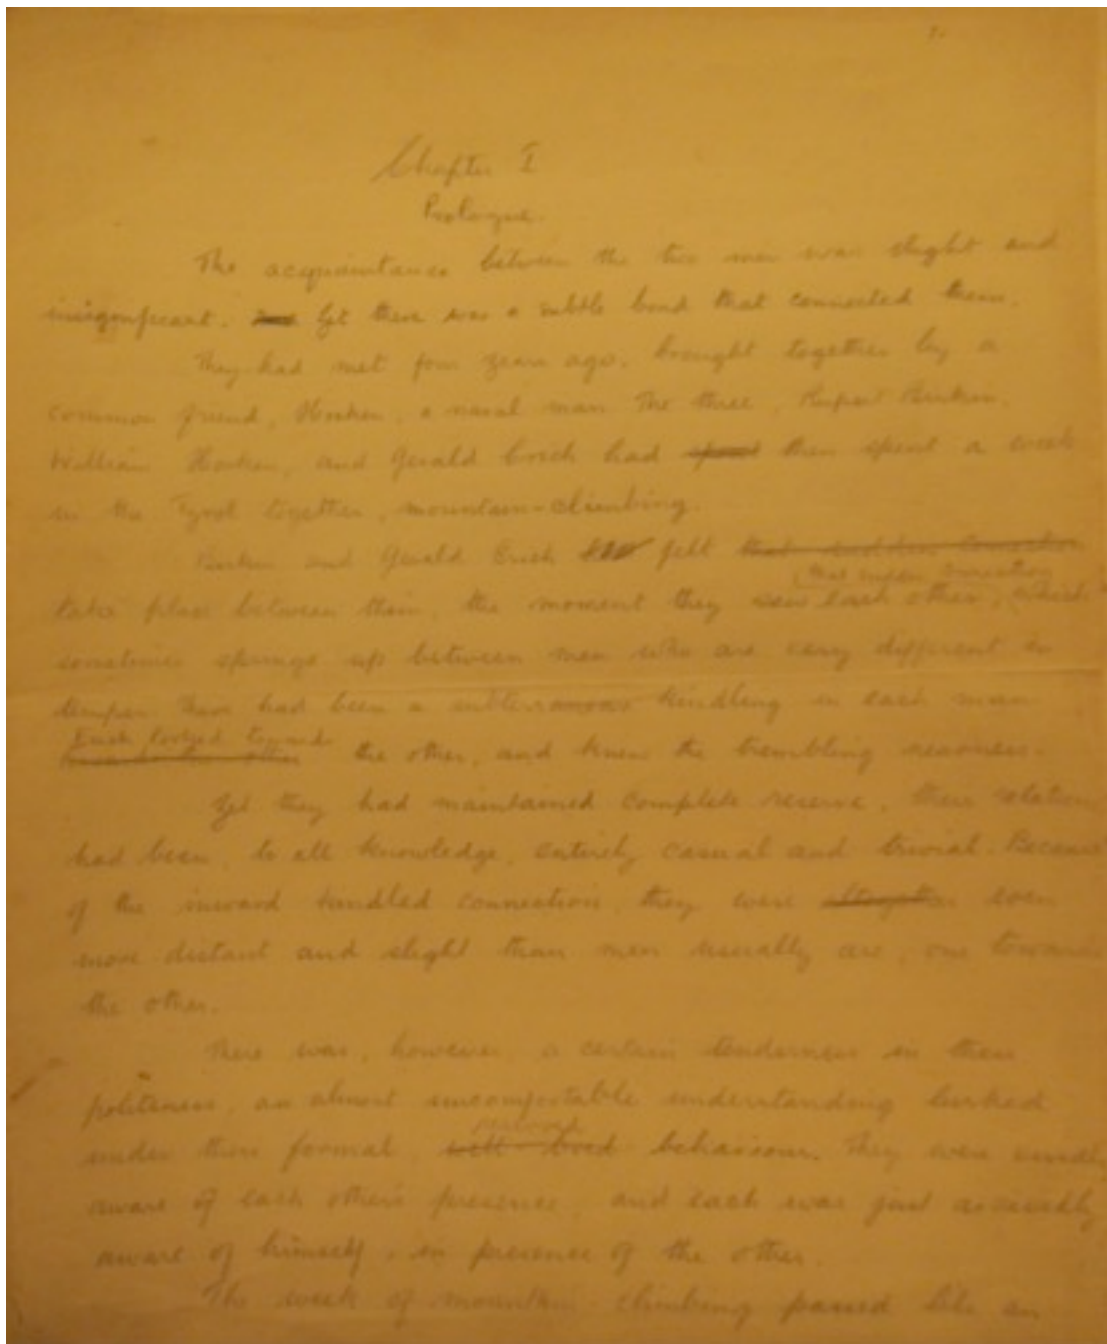 1.
Chapter I
Prologue.
The acquaintance between the two men was slight and
insignificant. Yet there was a subtle bond that connected them.
They had met four years ago, brought together by a
common friend, Hosken, a naval man. The three, Rupert Birkin,
William Hosken, and Gerald Crich had spent then spent a week
in the Tyrol together, mountain-climbing.
Birkin and Gerald Crich felt that sudden connection
that sudden connection
take place between them, the moment they saw each other, which
sometimes springs up between men who are very different in
temper. There had been a subterranean kindling in each man
Each looked towards
the other, and knew the trembling nearness.
Yet they had maintained complete reserve, their relations
had been, to all knowledge, entirely casual and trivial. Because
of the inward kindled connection, they were altogether even
more distant and slight than men usually are, one towards
the other.
There was, however, a certain tenderness in their
politeness, an almost uncomfortable understanding lurked
under their formal, well-bred behaviour. They were vividly
aware of each other's presence, and each was just as vividly
aware of himself, in presence of the other.
The week of mountain-climbing passed like an